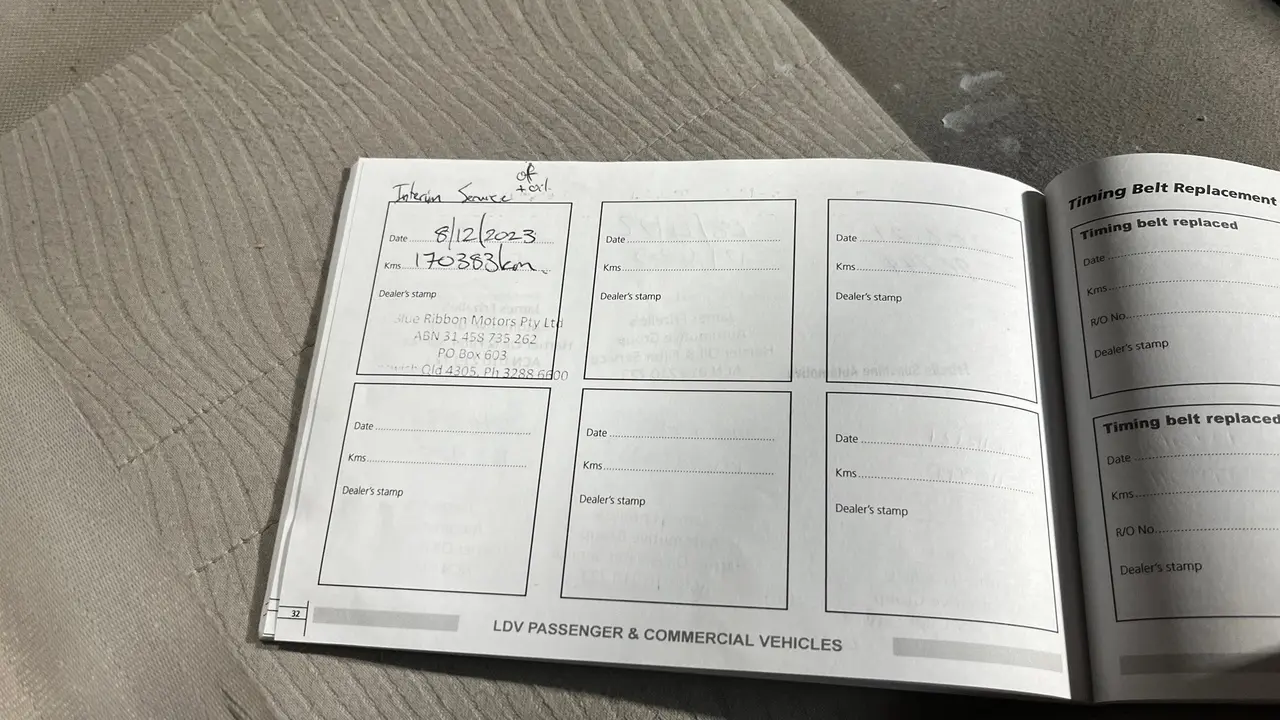 of
+ oil
Interim Service
Date 8/12/2023
Kms 170383km
Dealer's stamp
Blue Ribbon Motors Pty Ltd
ABN 31 458 735 262
PO Box 603
Qld 4305, Ph 3288 6600
Date
Kms
Dealer's stamp
Date
Kms
Dealer's stamp
Date
Kms
Dealer's stamp
Date
Kms
Dealer's stamp
Date
Kms
Dealer's stamp
32
LDV PASSENGER & COMMERCIAL VEHICLES
Timing Belt Replacement
Timing belt replaced
Date
Kms
R/O No.
Dealer's stamp
Timing belt replaced
Date
Kms
R/O No.
Dealer's stamp